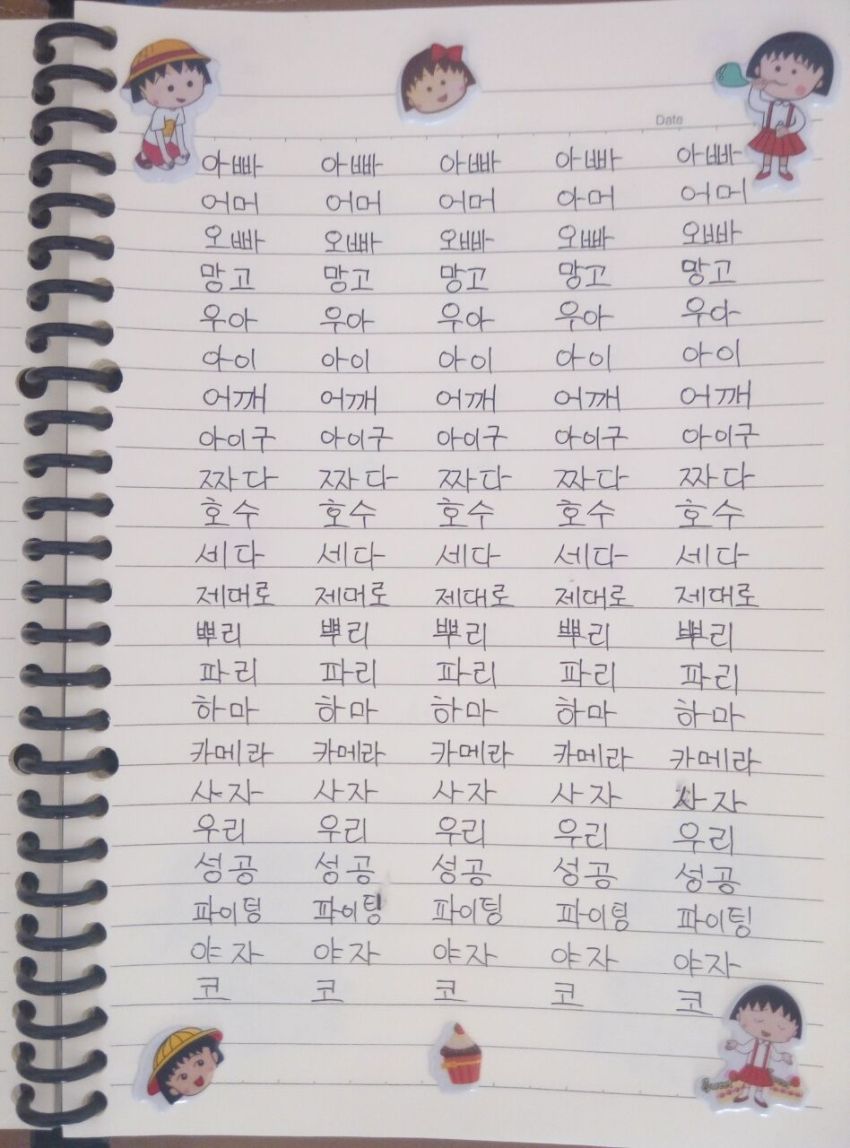 Date
아빠 아빠 아빠 아빠 아빠
어머 어머 어머 아머 어머
오빠 오빠 오빠 오빠 오빠
망고 망고 망고 망고 망고
우아 우아 우아 우아 우아
아이 아이 아이 아이 아이
어깨 어깨 어깨 어깨 어깨
아이구 아이구 아이구 아이구 아이구
짜다 짜다 짜다 짜다 짜다
호수 호수 호수 호수 호수
세다 세다 세다 세다 세다
제대로 제대로 제대로 제대로 제대로
뿌리 뿌리 뿌리 뿌리 뿌리
파리 파리 파리 파리 파리
하마 하마 하마 하마 하마
카메라 카메라 카메라 카메라 카메라
사자 사자 사자 사자 사자
우리 우리 우리 우리 우리
성공 성공 성공 성공 성공
파이팅 파이팅 파이팅 파이팅 파이팅
야자 야자 야자 야자 야자
코 코 코 코 코